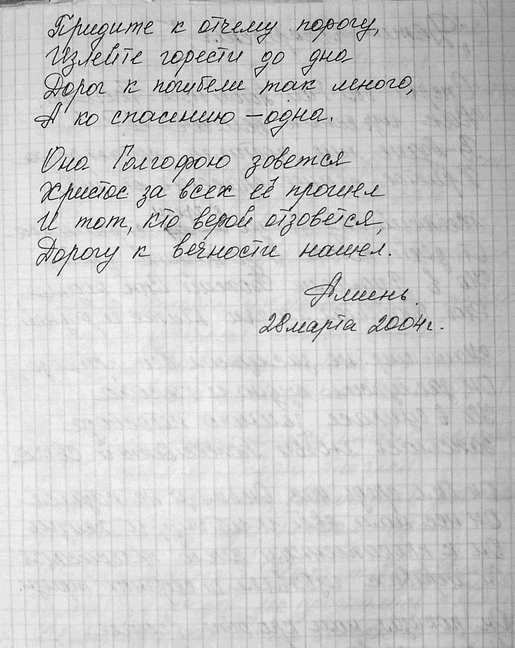 Придите к отчему порогу,
Излейте горести до дна
Дорог к погибели так много,
А ко спасению – одна.
Она Голгофою зовется
Христос за всех её прошел
И тот, кто верой отзовётся,
Дорогу к вечности нашел.
Аминь.
28 марта 2004 г.